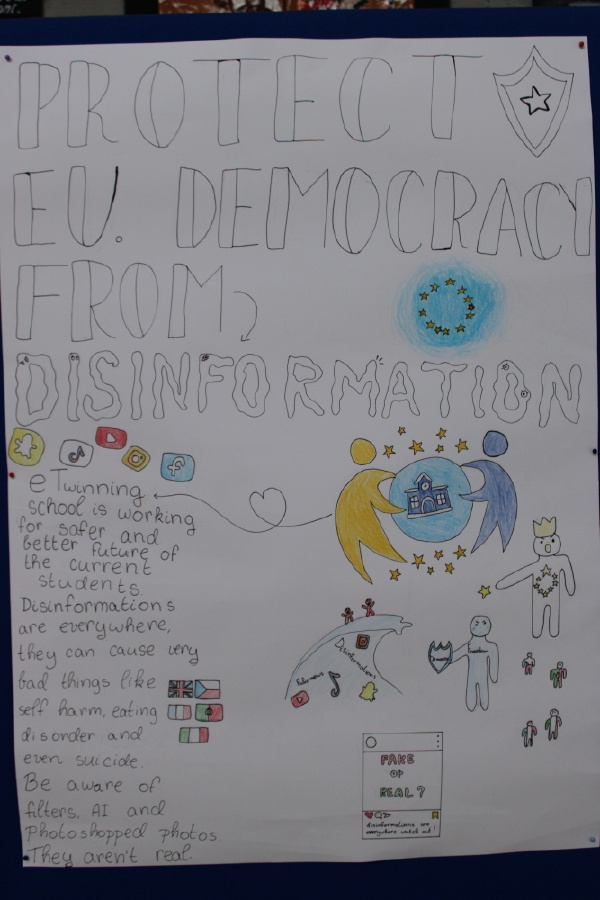 PROTECT
EU. DEMOCRACY
FROM
DISINFORMATION
eTwinning
school is working
for safer and
better future of
the current
students.
Disinformations
are everywhere,
they can cause very
bad things like
self harm, eating
disorder and
even suicide.
Be aware of
filters, AI and
Photoshopped photos
They aren't real.
Disinformations
FAKE
OR
REAL?
disinformations are
everywhere watch out!